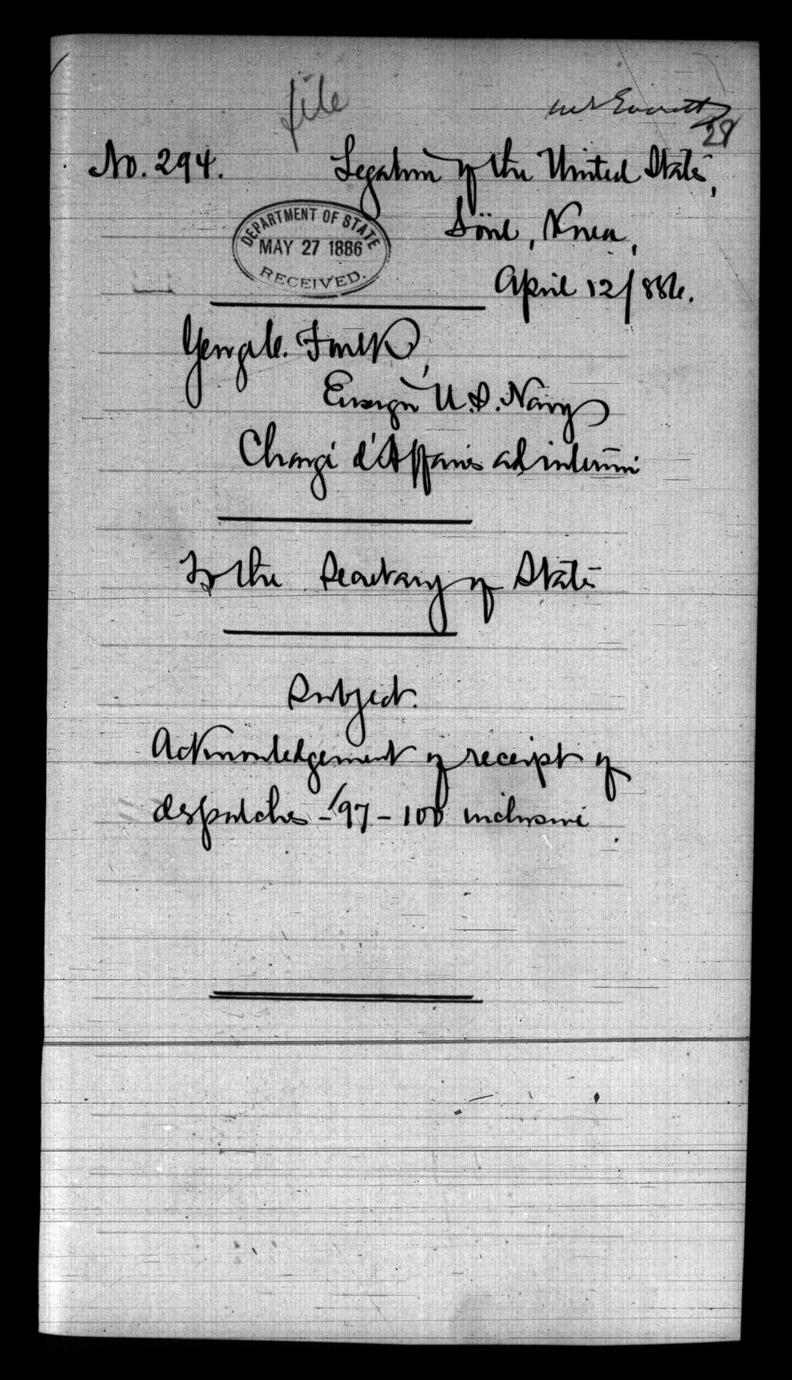 file
Mr Everett
28
No. 294. Legation of the United States,
DEPARTMENT OF STATE
MAY 27 1886
RECEIVED.
Söul, Korea,
April 12/886.
George C. Foulk,
Ensign U.S. Navy
Chargé d'Affaires ad interim
To the Secretary of State
Subject.
Acknowledgement of receipt of
despatches - 97 - 100 inclusive.